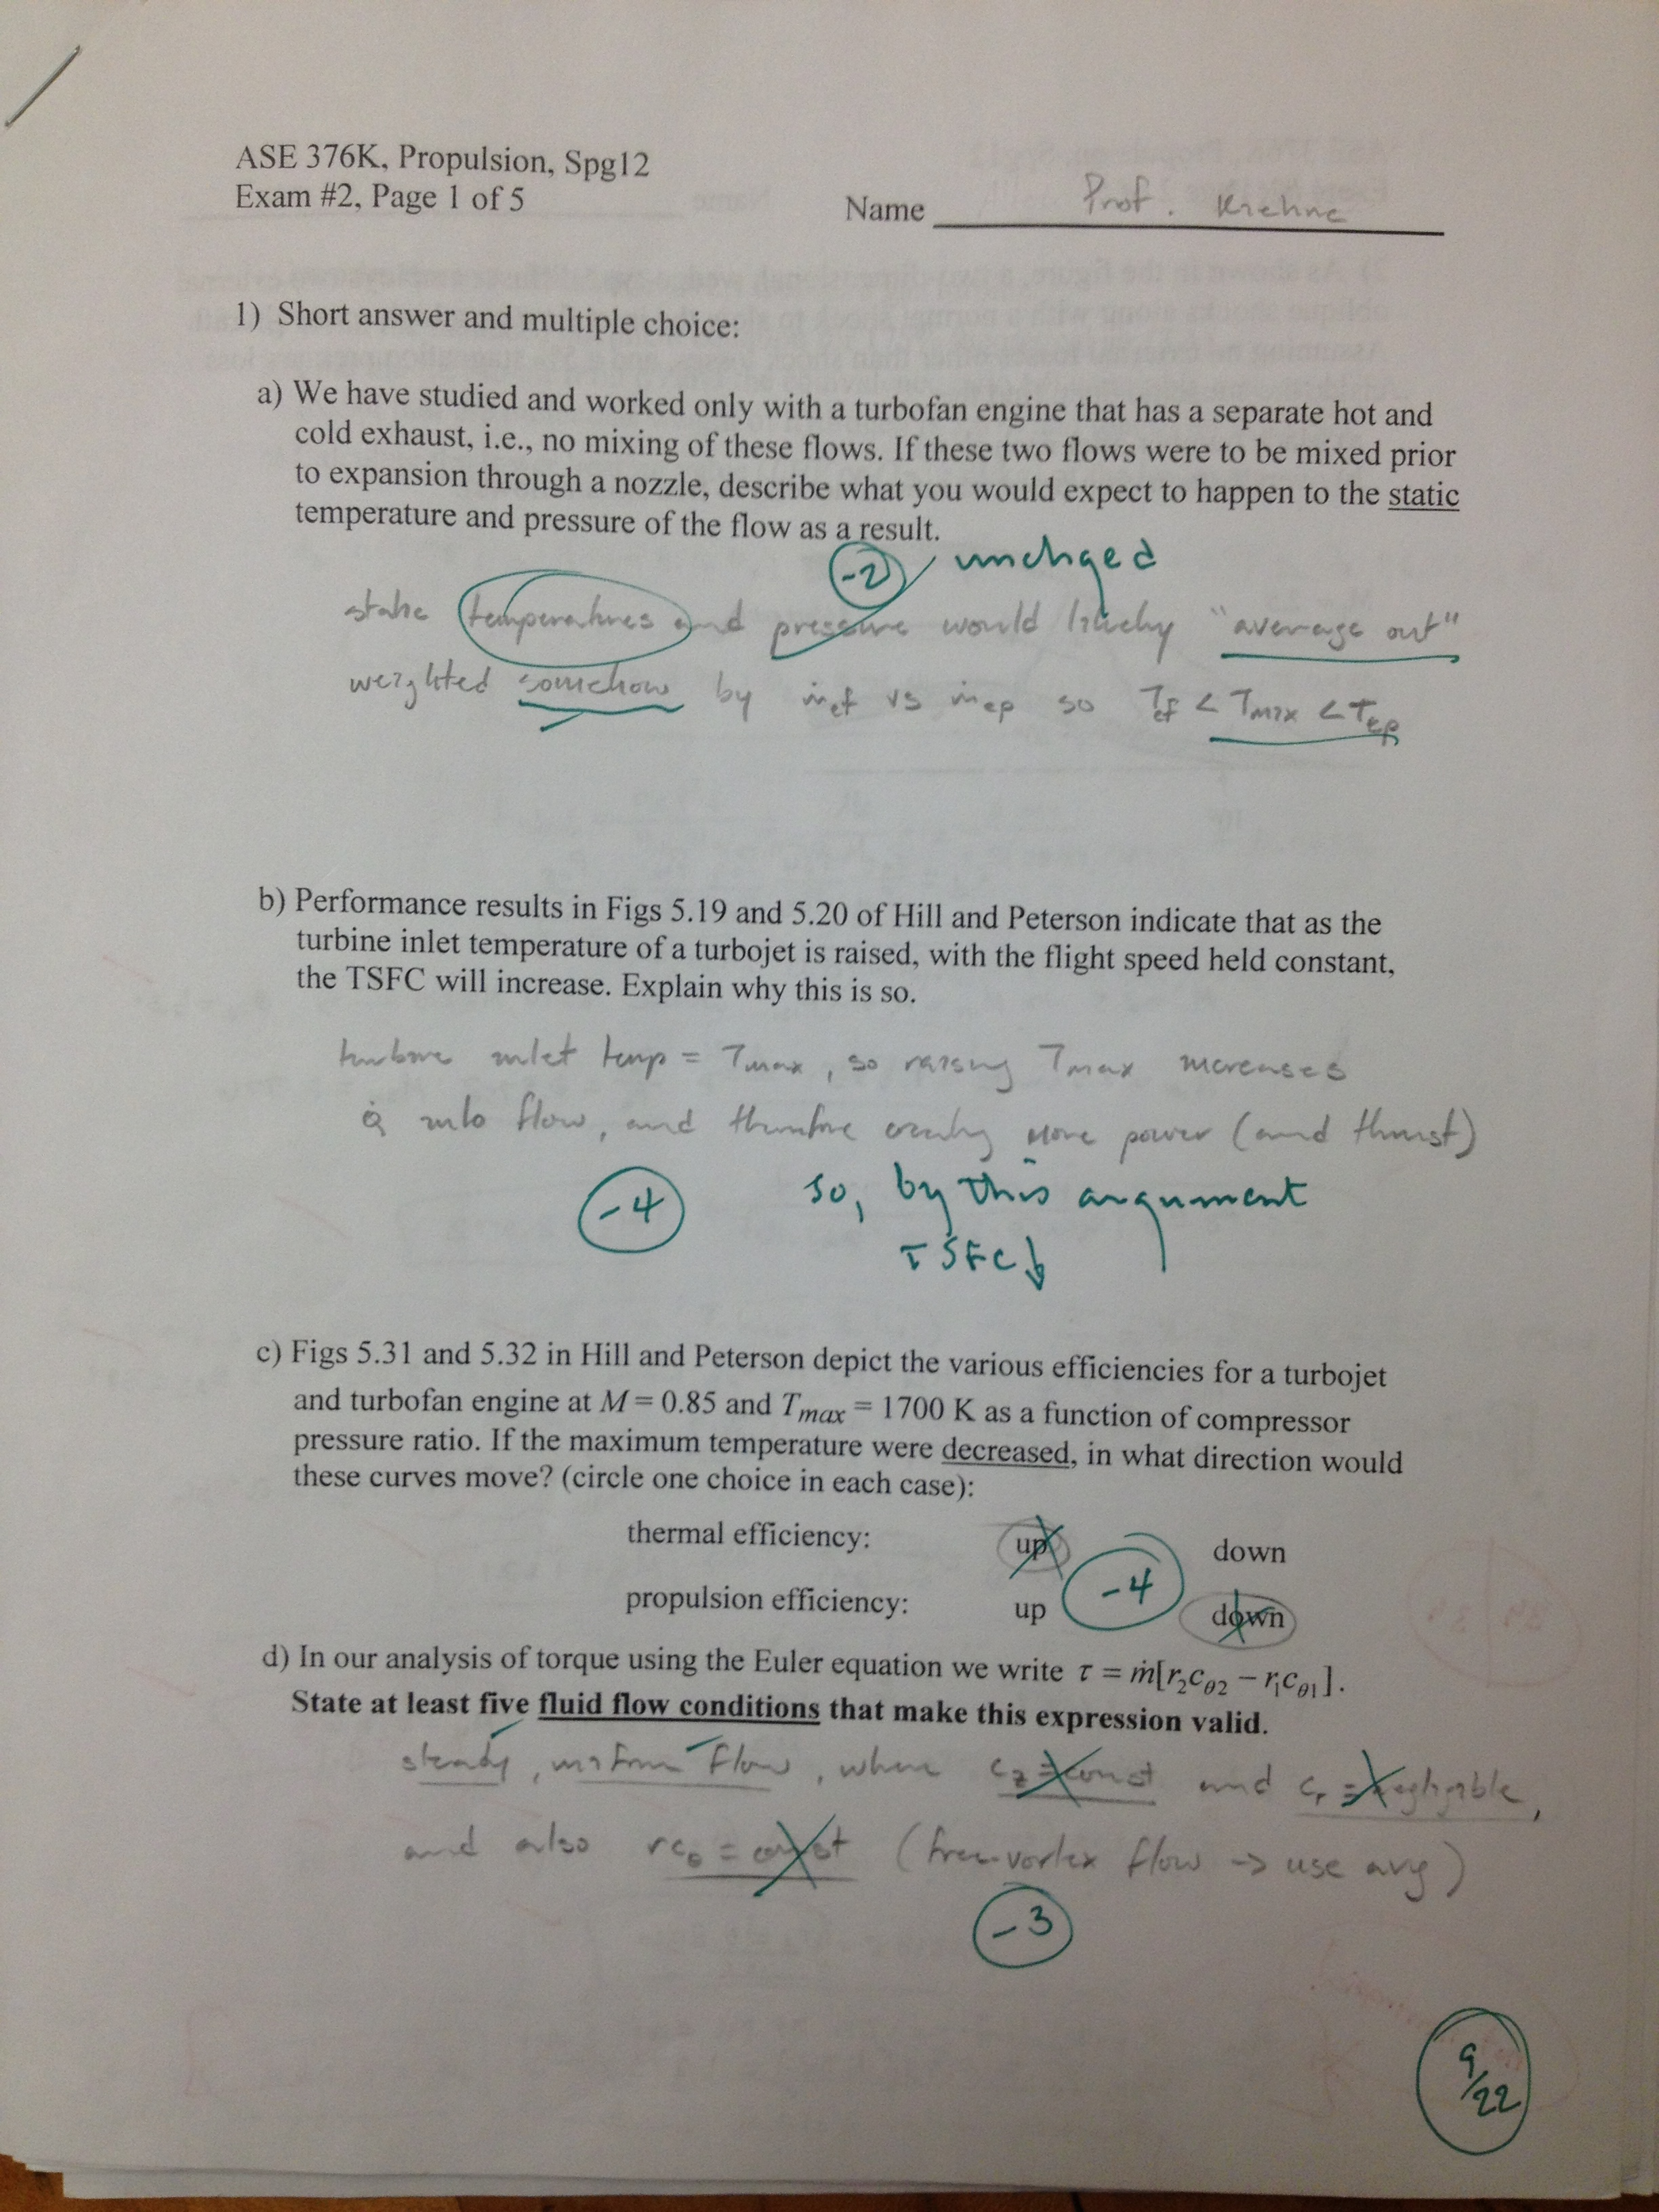 ASE 376K, Propulsion, Spg12
Exam #2, Page 1 of 5
Name Prof. Kriehne
1) Short answer and multiple choice:
a) We have studied and worked only with a turbofan engine that has a separate hot and
cold exhaust, i.e., no mixing of these flows. If these two flows were to be mixed prior
to expansion through a nozzle, describe what you would expect to happen to the static
temperature and pressure of the flow as a result.
-2 unchged
static temperatures and pressure would likely "average out"
weighted somehow by ṁef vs ṁep so Tef < Tmix < Tep
b) Performance results in Figs 5.19 and 5.20 of Hill and Peterson indicate that as the
turbine inlet temperature of a turbojet is raised, with the flight speed held constant,
the TSFC will increase. Explain why this is so.
turbine inlet temp = Tmax, so raising Tmax increases
Q̇ into flow, and therefore creating more power (and thrust)
-4 so, by this argument
TSFC↓
c) Figs 5.31 and 5.32 in Hill and Peterson depict the various efficiencies for a turbojet
and turbofan engine at M = 0.85 and Tmax = 1700 K as a function of compressor
pressure ratio. If the maximum temperature were decreased, in what direction would
these curves move? (circle one choice in each case):
thermal efficiency: up down
-4
propulsion efficiency: up down
d) In our analysis of torque using the Euler equation we write τ = ṁ[r₂cθ2 − r₁cθ1].
State at least five fluid flow conditions that make this expression valid.
steady, uniform flow, where cz = const and cr = negligible,
and also rcθ = const (free-vortex flow -> use avg)
-3
9/22